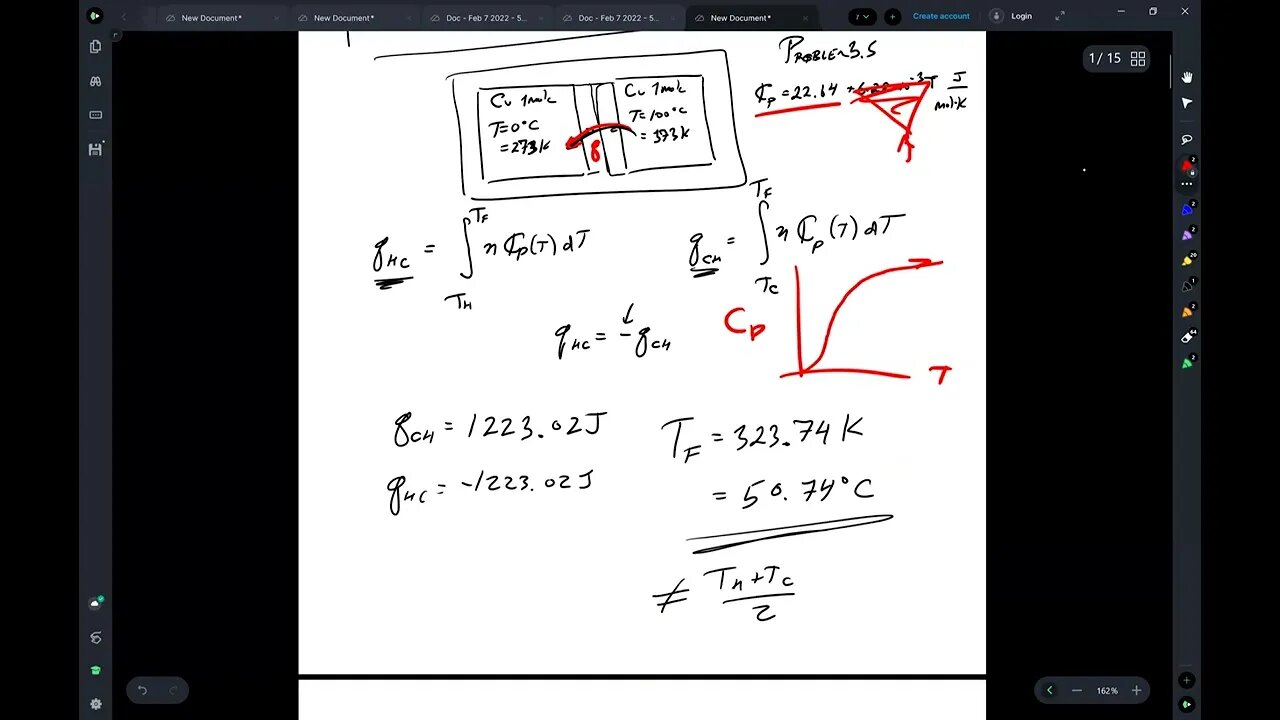 New Document*
New Document*
Doc - Feb 7 2022 - 5...
Doc - Feb 7 2022 - 5...
New Document*
1
Create account
Login
1 / 15
PROBLEM 3.5
Cu 1 mole
T=0°C
=273K
Cu 1 mole
T=100°C
= 373K
q
ℂp = 22.64 + 6.28 10⁻³T J/mol·K
q_HC = ∫_{T_H}^{T_F} n ℂp(T) dT
q_CH = ∫_{T_C}^{T_F} n ℂp(T) dT
q_HC = - q_CH
Cp
T
q_CH = 1223.02J
q_HC = -1223.02J
T_F = 323.74 K
= 50.74°C
≠ (T_H + T_C)/2
162%